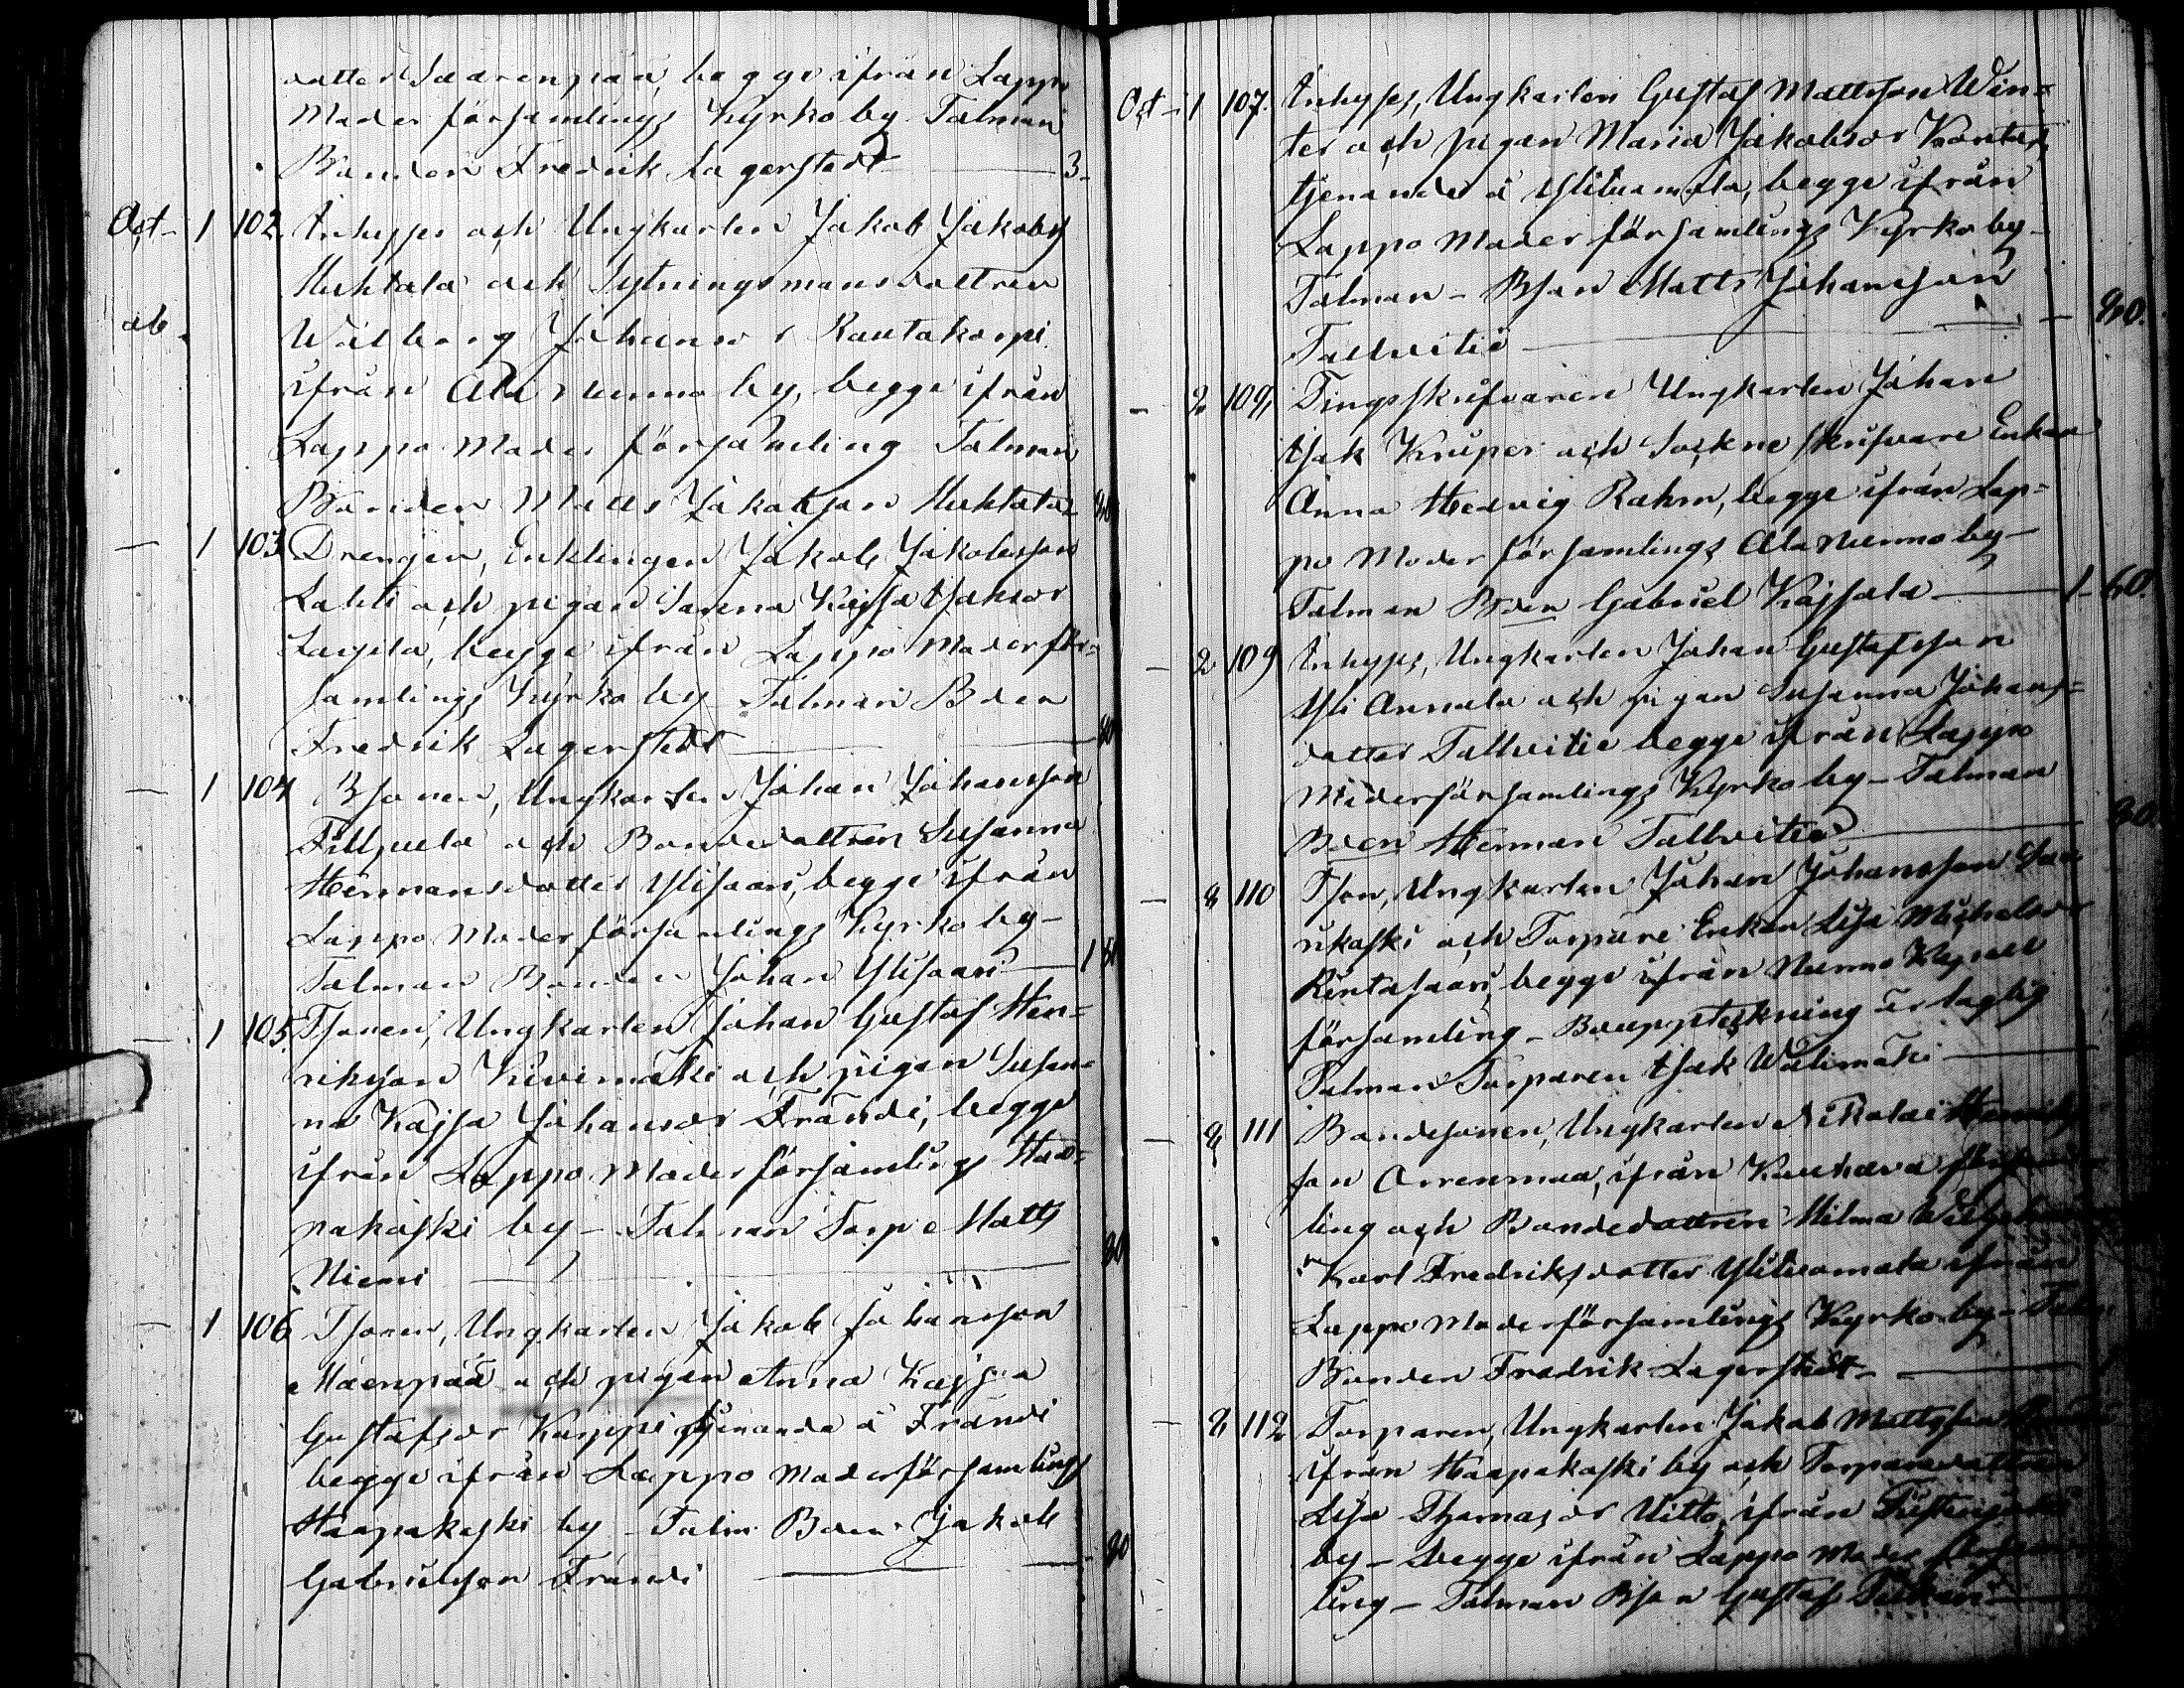 dotter Saarenpää, begge ifrån Lappo
Moder församlings Kyrkoby Talman
Bonden Fredrik Lagerstedt — 3-
Oct- 1 102. Inhyses och Ungkarlen Jakob Jakobss
Huhtala och Sytningsmansdottren
Wilborg Johansdr Rautakorpi
ifrån Ala Nurmo by, begge ifrån
Lappo Moder församling Talman
Bonden Matts Jakobsson Huhtala 80
— 1 103 Drengen, Enklingen Jakob Jakobsson
Lahti och pigan Sanna Kajsa Isaksdr
begge ifrån Lappo Moderför=
samlings Kyrko by Talman Bden
Fredrik Lagerstedt — 80
— 1 104 Bsonen, Ungkarlen Johan Johansson
och Bondedottren Susanna
Hermansdotter Ylisaari, begge ifrån
Lappo Moder församlings Kyrko by-
Talman Bonden Johan Ylisaari — 1
— 1 105. Tsonen, Ungkarlen Johan Gustaf Hen=
riksson Kivimäki och pigan Susan=
na Kajsa Johansdr Frändi, begge
ifrån Lappo Moder församlings Haa=
pakoski by - Talman Torp: Matts
Niemi — 80
— 1 106 Tsonen, Ungkarlen Jakob Johansson
Mäenpää och pigan Anna Kajsa
Gustafsdr Karppi tjenande å Frändi
begge ifrån Lappo Moderförsamlings
Haapakoski by - Talm: Bden Jakob
Gabrielsson Frändi — 80
Oct- 1 107. Inhyses, Ungkarlen Gustaf Mattsson Win=
ter och pigan Maria Jakobsdr
tjenande å Ylituomala, begge ifrån
Lappo Moder församlings Kyrko by-
Talman - Bson Matts Johansson
Tallvitie — 80.
— 2 109, Tingsskrifvaren Ungkarlen Johan
Isak och Sockneskrifvare Enkan
Anna Hedvig Rahm, begge ifrån Lap=
po Moder församlings Ala Nurmo by-
Talman Bden Gabriel Kajsala — 1- 60.
— 2 109 Inhyses, Ungkarlen Johan Gustafsson
Yli Annala och pigan Susanna Johans=
dotter Tallvitie begge ifrån Lappo
Moderförsamlings Kyrko by - Talman
Bden Herman Tallvitie — 80.
— 8 110 Tson, Ungkarlen Johan Johansson
och Torpare Enkan Lisa Michelsdr
Rintasaari, begge ifrån Nurmo Kapell
församling - Bouppteckning är laglig
Talman Torparen Isak Wälimäki —
— 8 111 Bondesonen, Ungkarlen Nikolai
son Orrenmaa, ifrån Kauhava
ling och Bondedottren Hilma
Karl Fredriksdotter Ylituomala ifrån
Lappo Moderförsamlings Kyrko by -
Bonden Fredrik Lagerstedt - —
— 8 112 Torparen, Ungkarlen Jakob Mattsson
ifrån Haapakoski by och Torparedottren
Lisa Thomasdr Uitto, ifrån
by - begge ifrån Lappo Moder
ling - Talman Bson Gustaf —